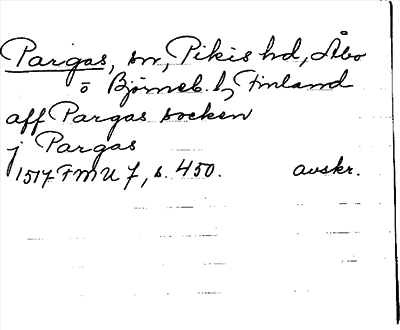 Pargas, sn, Pikis hd, Åbo
o Björneb. l, Finland
aff Pargas socken
j Pargas
1517 FMU 7, s. 450. avskr.